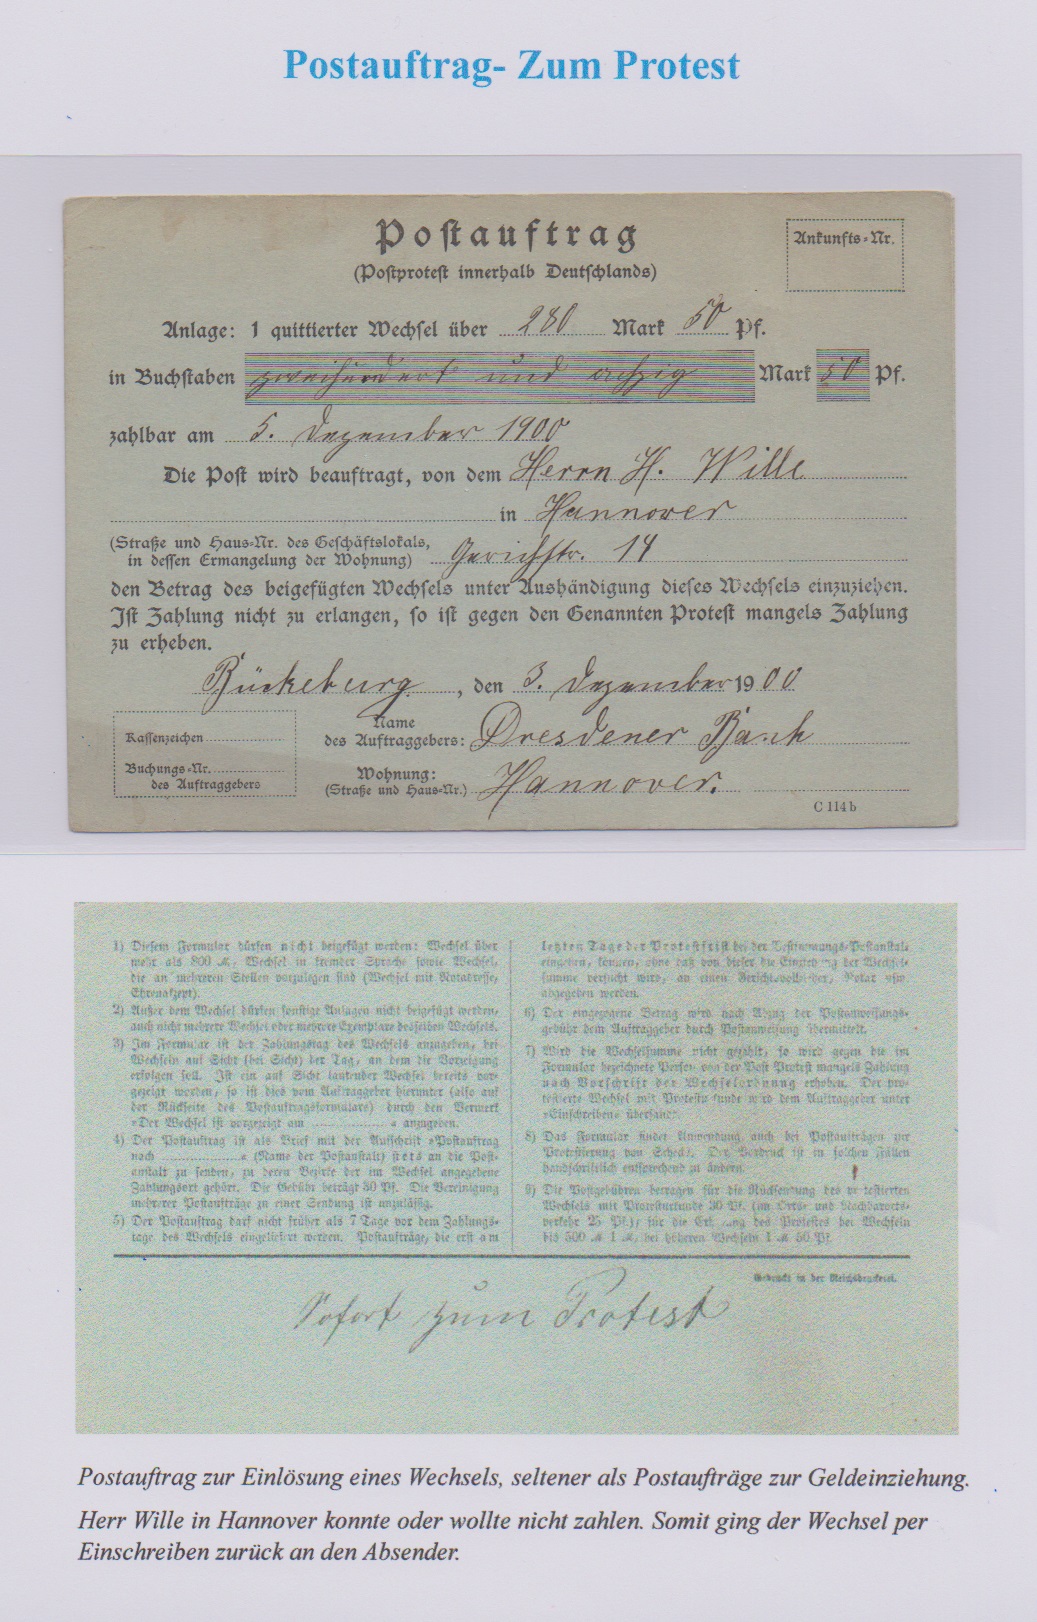 Postauftrag- Zum Protest
Poſtauftrag
(Poſtproteſt innerhalb Deutſchlands)
Ankunfts-Nr.
Anlage: 1 quittierter Wechſel über 280 Mark 50 Pf.
in Buchſtaben zweihundert und achzig Mark 50 Pf.
zahlbar am 5. Dezember 1900
Die Poſt wird beauftragt, von dem Herrn H. Wille
in Hannover
(Straße und Haus-Nr. des Geſchäftslokals,
in deſſen Ermangelung der Wohnung) Gerichſtr. 14
den Betrag des beigefügten Wechſels unter Aushändigung dieſes Wechſels einzuziehen.
Iſt Zahlung nicht zu erlangen, ſo iſt gegen den Genannten Proteſt mangels Zahlung
zu erheben.
Bückeburg, den 3. Dezember 1900
Kaſſenzeichen
Buchungs-Nr.
des Auftraggebers
Name
des Auftraggebers: Dresdener Bank
Wohnung:
(Straße und Haus-Nr.) Hannover.
C 114b
1) Dieſem Formular dürfen nicht beigefügt werden: Wechſel über
mehr als 800 ℳ, Wechſel in fremder Sprache ſowie Wechſel,
die an mehreren Stellen vorzulegen ſind (Wechſel mit Notadreſſe,
Ehrenakzept).
2) Außer dem Wechſel dürfen ſonſtige Anlagen nicht beigefügt werden,
auch nicht mehrere Wechſel oder mehrere Exemplare desſelben Wechſels.
3) Im Formular iſt der Zahlungstag des Wechſels anzugeben, bei
Wechſeln auf Sicht (bei Sicht) der Tag, an dem die Vorzeigung
erfolgen ſoll. Iſt ein auf Sicht lautender Wechſel bereits vor-
gezeigt worden, ſo iſt dies vom Auftraggeber hierunter (alſo auf
der Rückſeite des Poſtauftragsformulars) durch den Vermerk
»Der Wechſel iſt vorgezeigt am « anzugeben.
4) Der Poſtauftrag iſt als Brief mit der Aufſchrift »Poſtauftrag
nach « (Name der Poſtanſtalt) ſtets an die Poſt-
anſtalt zu ſenden, zu deren Bezirke der im Wechſel angegebene
Zahlungsort gehört. Die Gebühr beträgt 30 Pf. Die Vereinigung
mehrerer Poſtaufträge zu einer Sendung iſt unzuläſſig.
5) Der Poſtauftrag darf nicht früher als 7 Tage vor dem Zahlungs-
tage des Wechſels eingeliefert werden. Poſtaufträge, die erſt am
letzten Tage der Proteſtfriſt bei der Beſtimmungs-Poſtanſtalt
eingehen, können, ohne daß von dieſer die Einziehung der Wechſel-
ſumme verſucht wird, an einen Gerichtsvollzieher, Notar uſw.
abgegeben werden.
6) Der eingezogene Betrag wird nach Abzug der Poſtanweiſungs-
gebühr dem Auftraggeber durch Poſtanweiſung übermittelt.
7) Wird die Wechſelſumme nicht gezahlt, ſo wird gegen die im
Formular bezeichnete Perſon von der Poſt Proteſt mangels Zahlung
nach Vorſchrift der Wechſelordnung erhoben. Der pro-
teſtierte Wechſel mit Proteſturkunde wird dem Auftraggeber unter
»Einſchreiben« überſandt.
8) Das Formular findet Anwendung auch bei Poſtaufträgen zur
Proteſtierung von Schecks. Der Vordruck iſt in ſolchen Fällen
handſchriftlich entſprechend zu ändern.
9) Die Poſtgebühren betragen für die Rückſendung des proteſtierten
Wechſels mit Proteſturkunde 30 Pf. (im Orts- und Nachbarorts-
verkehr 25 Pf.); für die Erhebung des Proteſtes bei Wechſeln
bis 500 ℳ 1 ℳ, bei höheren Wechſeln 1 ℳ 50 Pf.
Gedruckt in der Reichsdruckerei.
Sofort zum Protest
Postauftrag zur Einlösung eines Wechsels, seltener als Postaufträge zur Geldeinziehung.
Herr Wille in Hannover konnte oder wollte nicht zahlen. Somit ging der Wechsel per
Einschreiben zurück an den Absender.